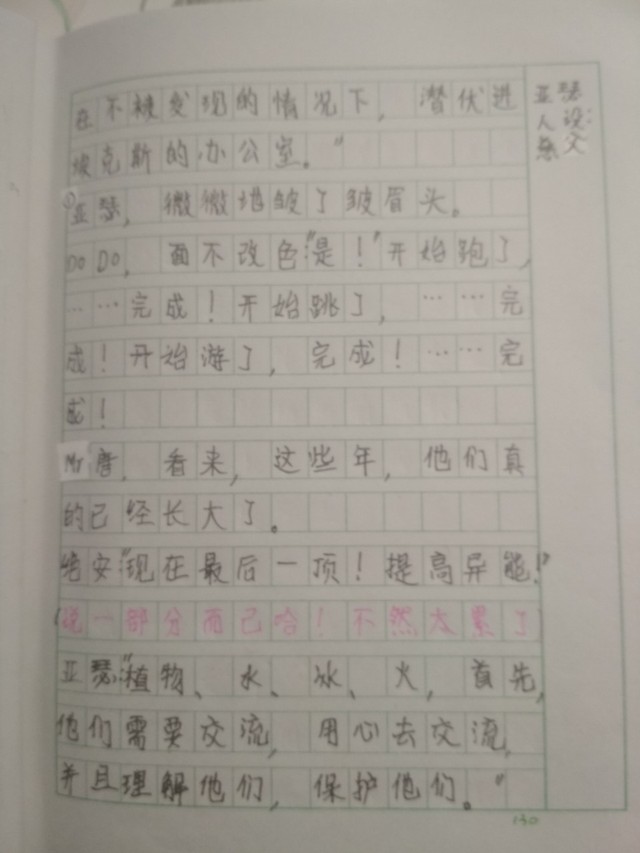 在不被发现的情况下，潜伏进
埃克斯的办公室。”
①亚瑟，微微地皱了皱眉头。
DoDo，面不改色“是！”开始跑了，
……完成！开始跳了，……完
成！开始游了，完成！……完
成！
Mr唐，看来，这些年，他们真
的已经长大了。
绝安“现在最后一项！提高异能！”
（说一部分而已哈！不然太累了
亚瑟：“植物、水、冰、火，首先，
他们需要交流，用心去交流，
并且理解他们，保护他们。”
亚瑟
人设：
130